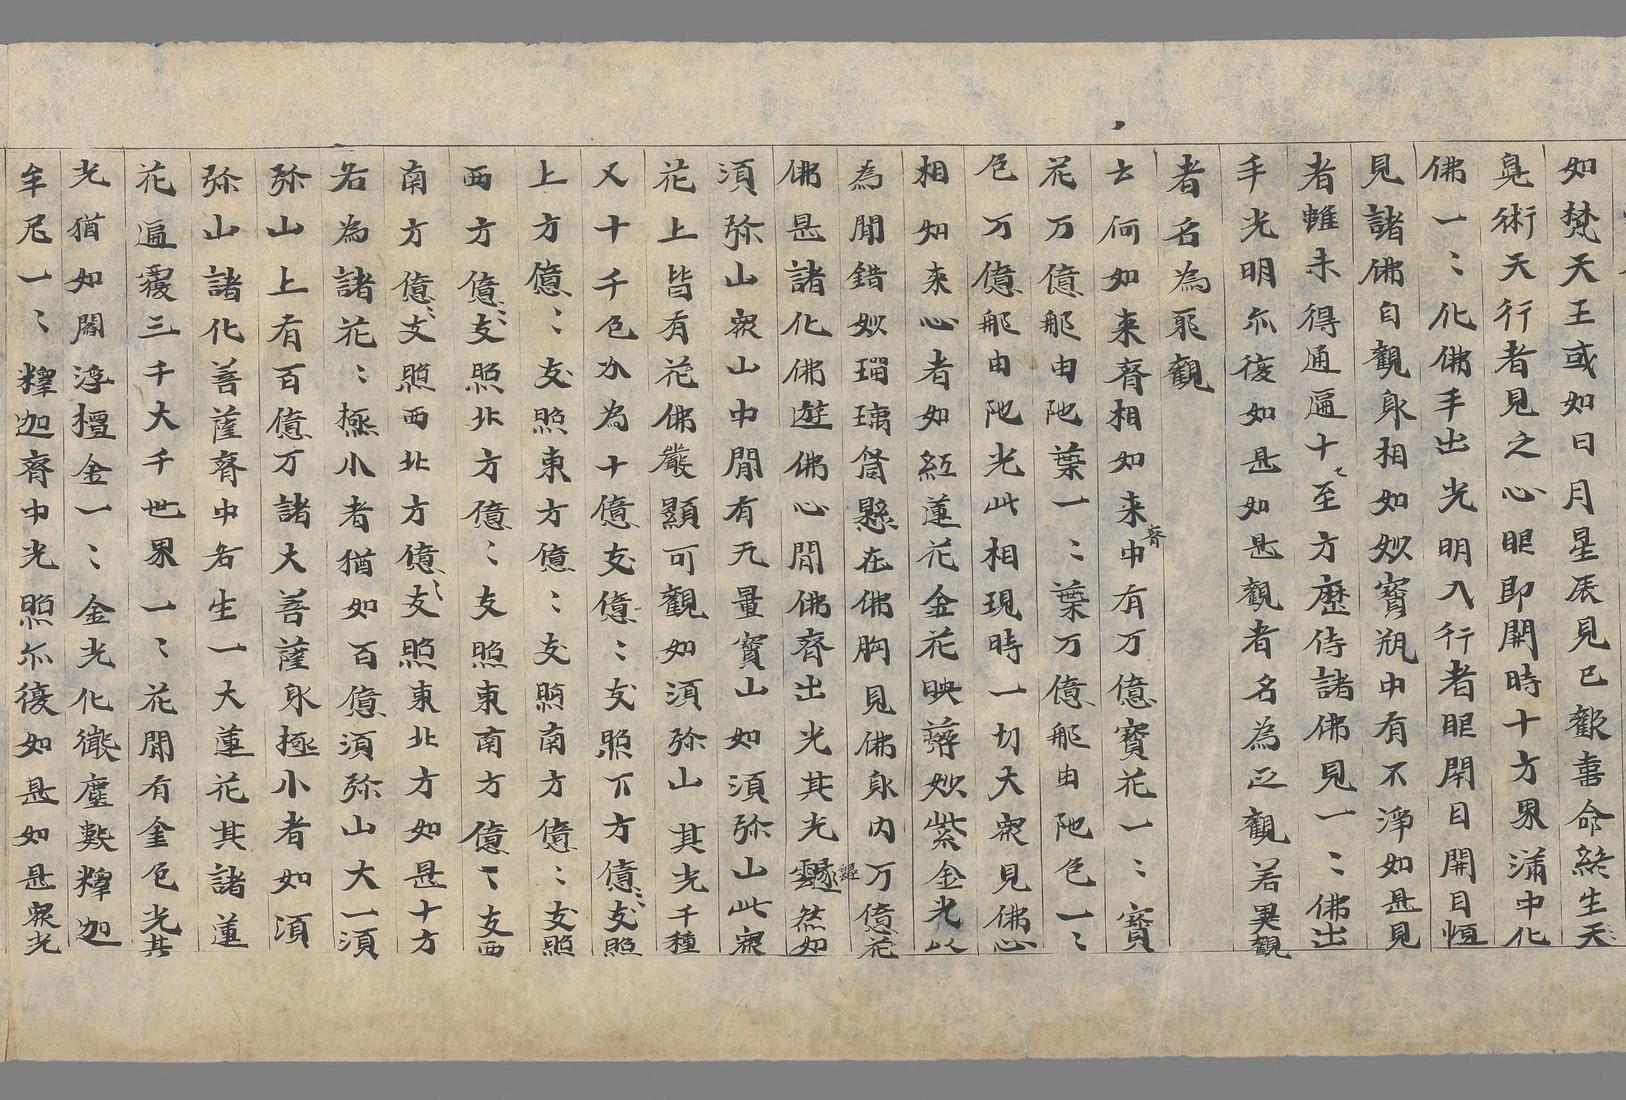 如梵天王或如日月星辰見已歡喜命終生天
毳術天行者見之心眼即開時十方界滿中化
佛一〻化佛手出光明入行者眼閇目開目恒
見諸佛自觀身相如妙寶瓶中有不淨如是見
者雖未得通遍十至方歷侍諸佛見一〻佛出
手光明亦復如是如是觀者名為正觀若異觀
者名為耶觀
云何如来齊相如来齊中有万億寶花一〻寶
花万億那由陁葉一〻葉万億那由陁色一〻
色万億那由陁光此相現時一切大衆見佛心
相如来心者如紅蓮花金花映蔽妙紫金光以
為間錯妙瑠璃筒懸在佛胸見佛身内万億花
佛是諸化佛遊佛心間佛齊出光其光然如
須弥山衆山中間有无量寶山如須弥山此衆
花上皆有花佛嚴顯可觀如須弥山其光千種
又十千色分為十億支億〻支照下方億〻支照
上方億〻支照東方億〻支照南方億〻支照
西方億〻支照北方億〻支照東南方億〻支西
南方億〻支照西北方億〻支照東北方如是十方
各為諸花〻極小者猶如百億須弥山大一須
弥山上有百億万諸大菩薩身極小者如須
弥山諸化菩薩齊中各生一大蓮花其諸蓮
花遍覆三千大千世界一〻花間有金色光其
光猶如閻浮檀金一〻金光化微塵數釋迦
牟尼一〻釋迦齊中光照亦復如是如是衆光